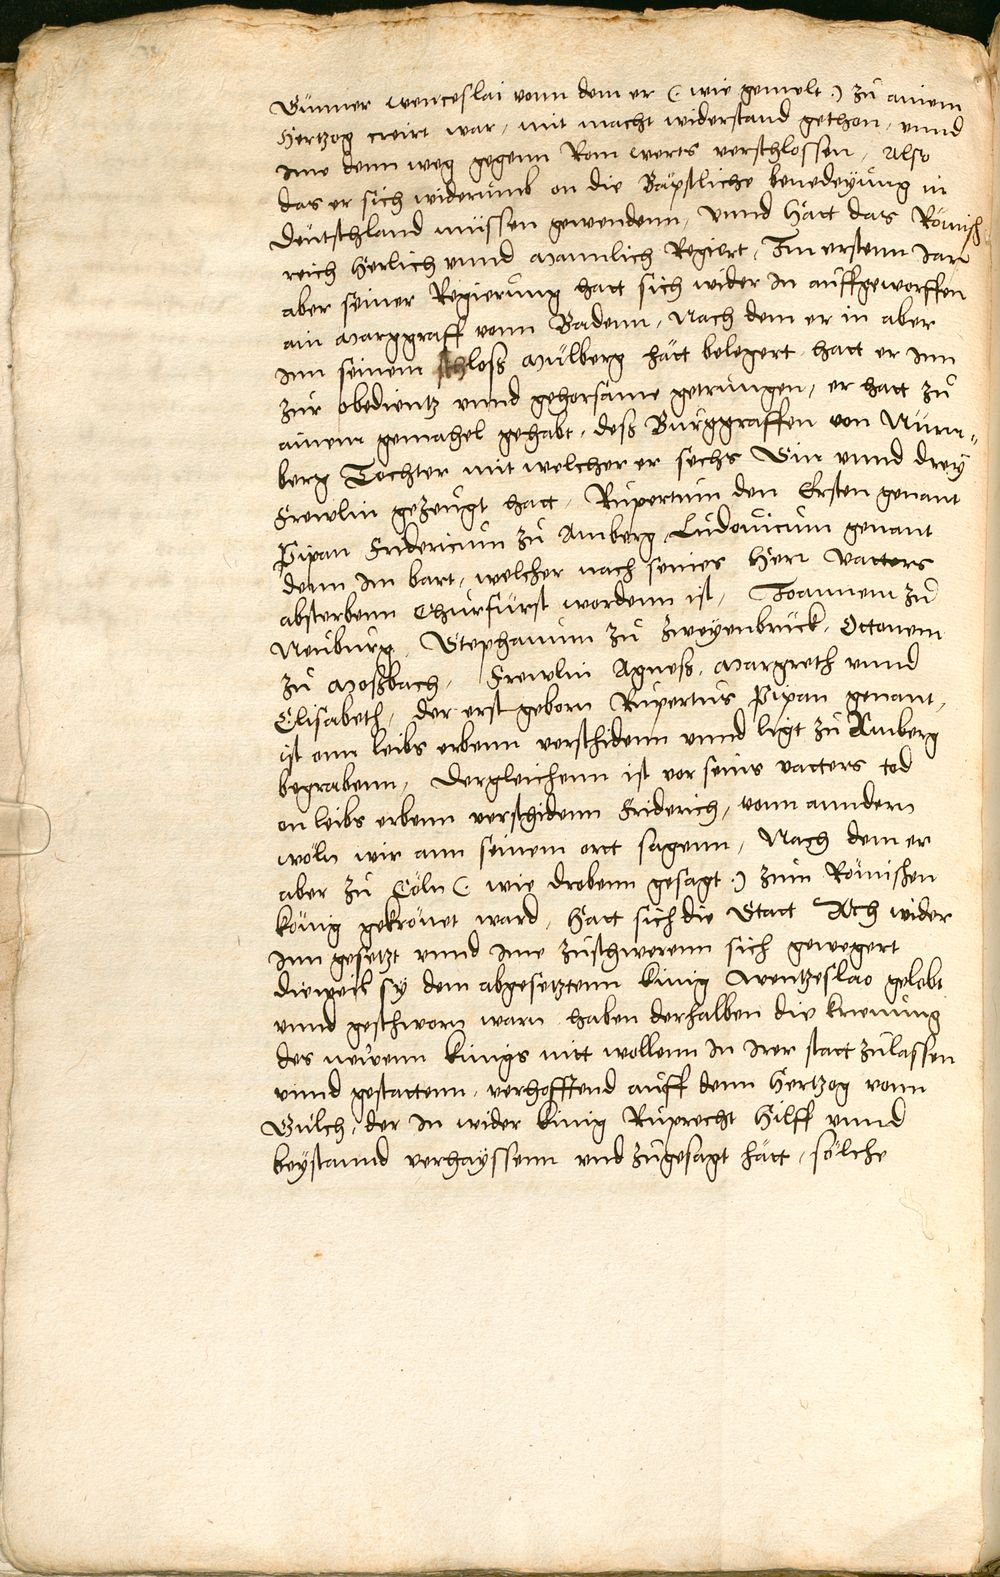 Günner wenceslai vonn dem er (. wie gemelt .) zů ainem
Hertzog creirt war, mit macht widerstand gethon, vnnd
ime denn weg gegenn Rom werts verschlossen, Also
das er sich widerumb on die Bäpstliche benedeyung in
deutschland müssen gewendenn, Vnnd Hatt das Römisch
reich Herlich vnnd Mannlich Regiert, Im erstenn Jar
aber seiner Regierung hatt sich wider in auffgeworffen
ain Marggraff vonn Badenn, Nach dem er in aber
inn seinem schloß Mülberg hätt belegert hatt er inn
zur obedientz vnnd gehorsame getrungen, er hatt zů
ainem gemahel gehabt, deß Burggraffen von Nürn-
berg Tochter mit welcher er sechs Sün vnnd drey
Frewlin gezeugt hatt, Rupertum den Ersten genant
Pipan Fridericum zů Amberg Ludouicum genant
denn im bart, welcher nach seines Herr vatters
absterbenn Churfürst wordenn ist, Joannem zů
Neuburg, Stephanum zů Zweyenbrück, Ottonem
zů Moßbach, Frewlin Agneß, Margreth vnnd
Elisabeth, der erst geborn Rupertus Pipan genant,
ist onn leibs erbenn verschidenn vnnd ligt zů Amberg
begrabenn, dergleichenn ist vor seins vatters tod
on leibs erbenn verschidenn Friderich, vonn anndern
wöln wir ann seinem ortt sagenn, Nach dem er
aber zů Cöln (. wie drobenn gesagt .) zum Römischen
könig gekrönet ward, Hatt sich die Statt Ach wider
inn gesetzt vnnd ime zuschwerenn sich gewegert
dieweil sy dem abgesetztenn künig Wentzeslao gelobt
vnnd geschworn warn haben derhalben die krönung
des newenn künigs nitt wollenn in irer statt zulassen
vnnd gestattenn, verhoffend auff denn Hertzog vonn
Gülch, der in wider künig Ruprecht Hilff vnnd
beystannd verhayssenn vnd zugesagt hätt, sölche